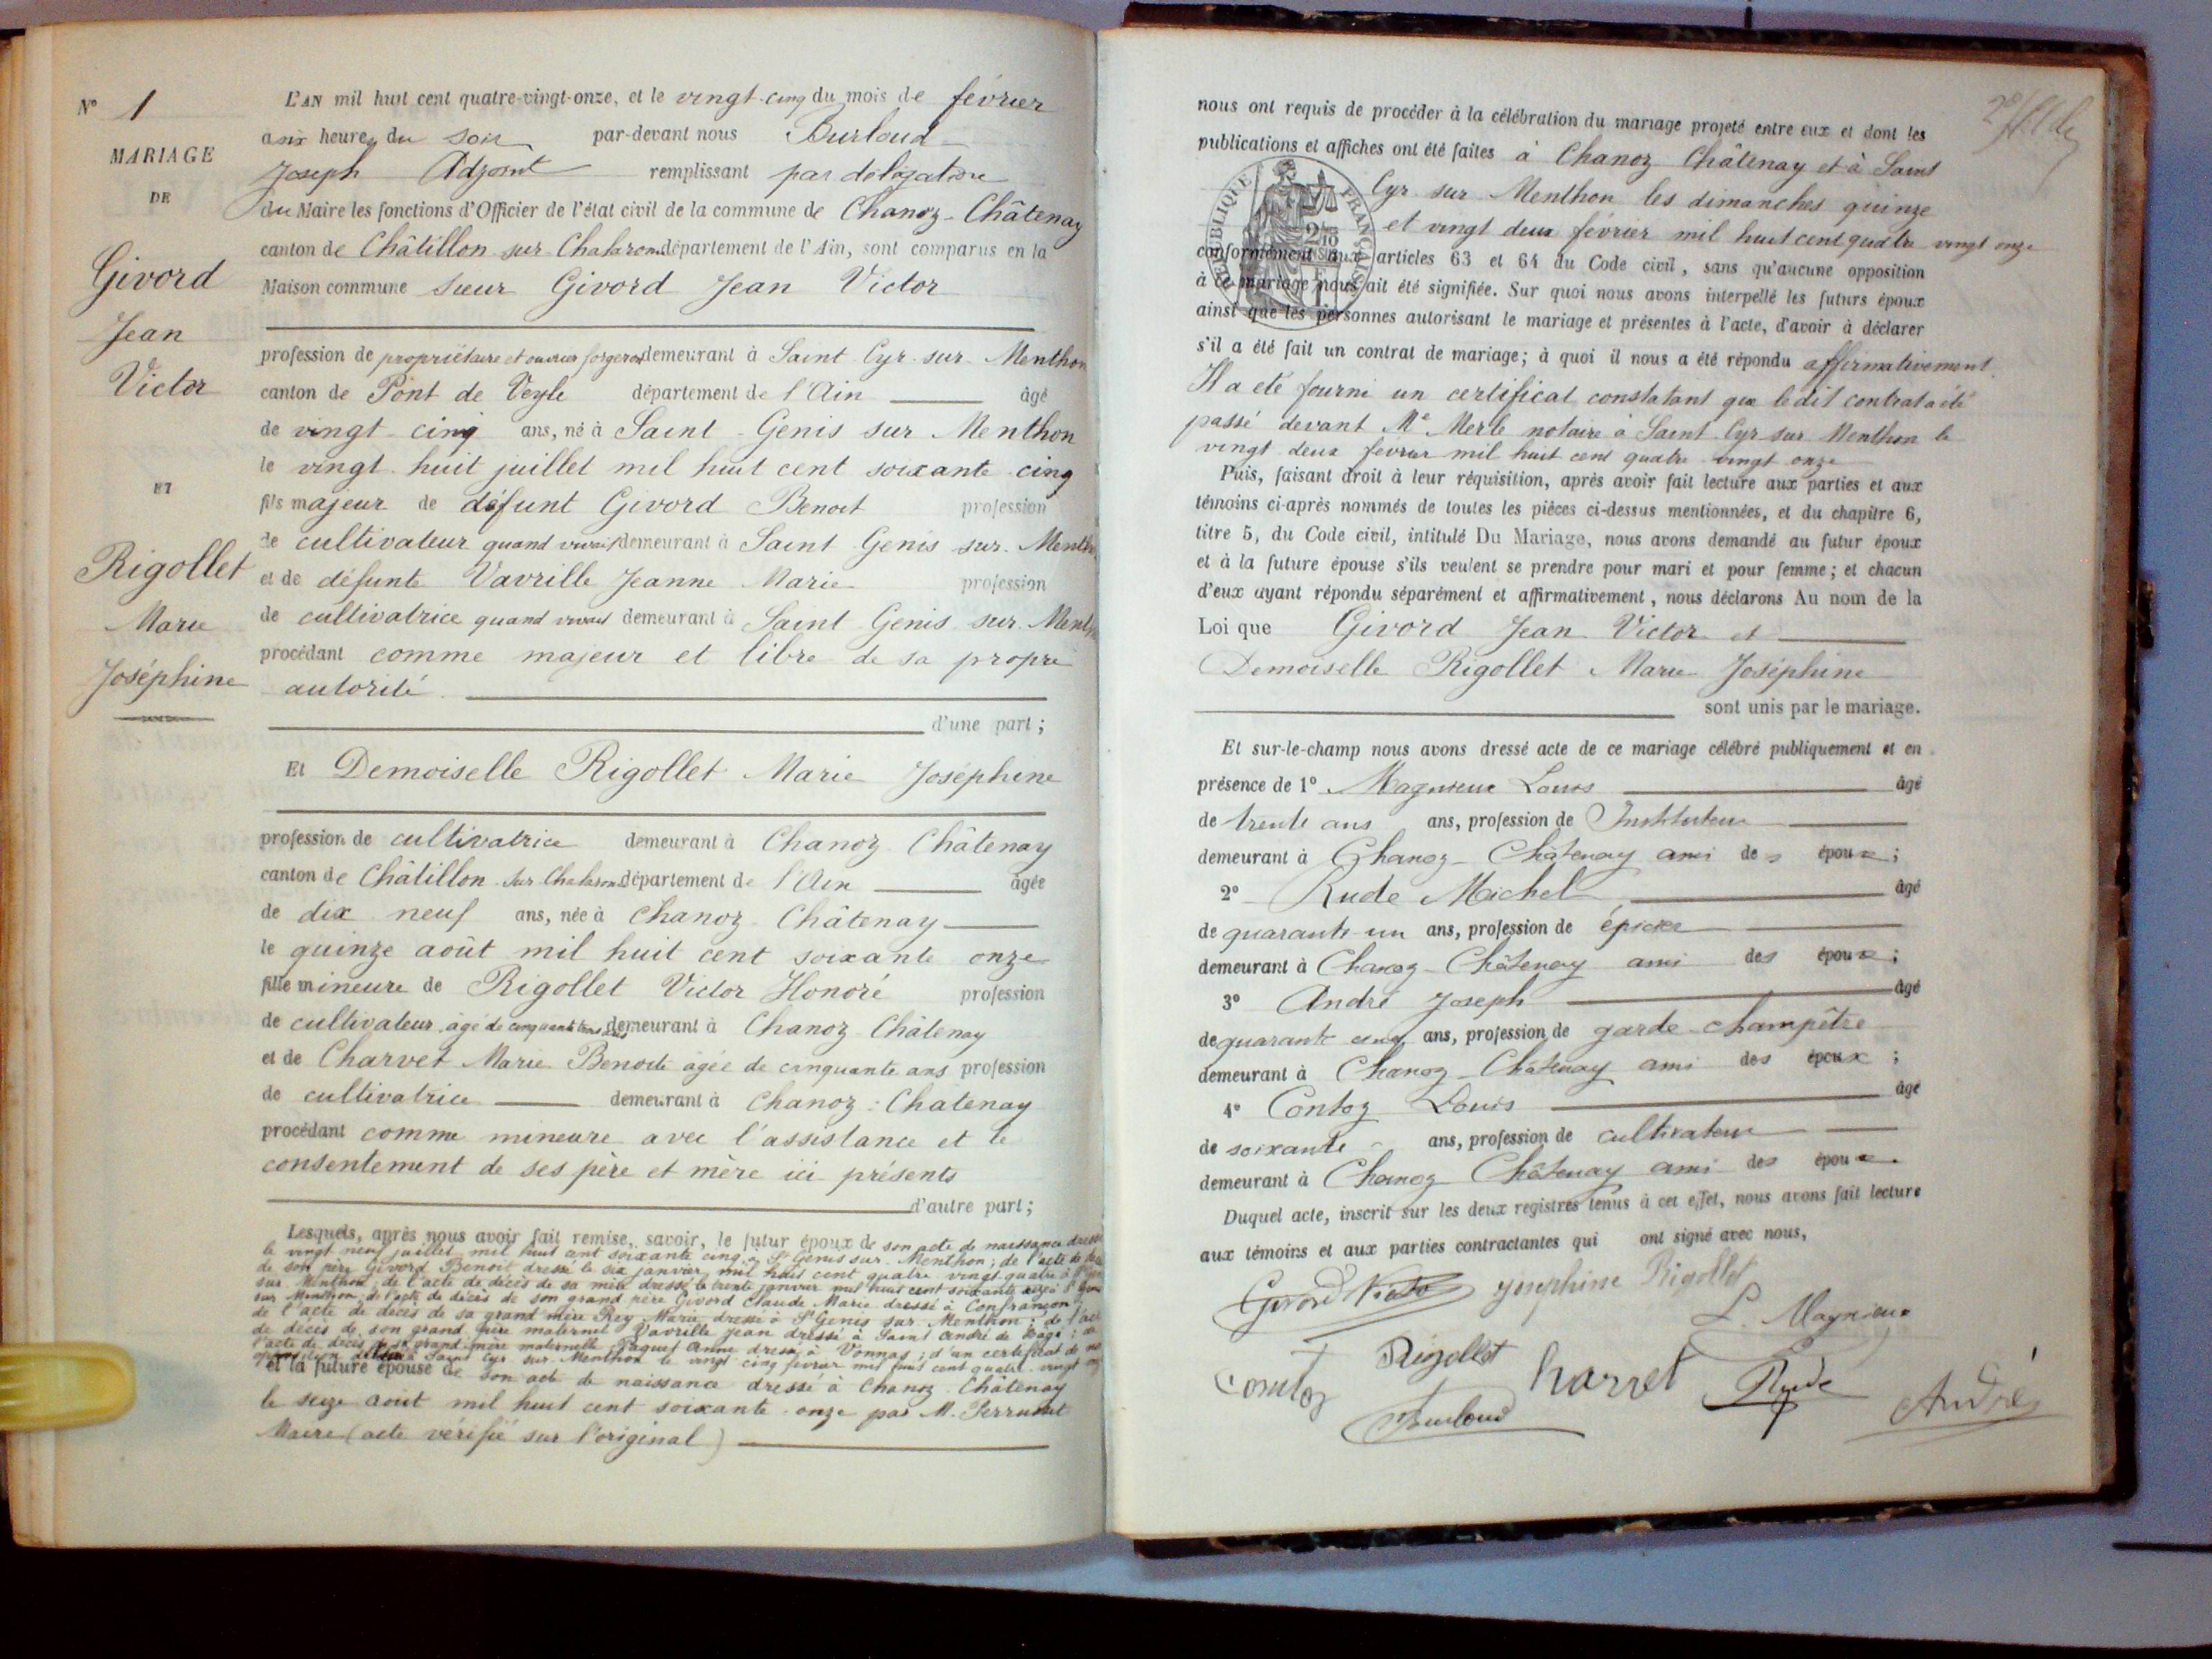 N° 1
MARIAGE
DE
Givord
Jean
Victor
ET
Rigollet
Marie
Joséphine
L'AN mil huit cent quatre-vingt-onze, et le vingt-cinq du mois de février
a six heures du soir par-devant nous Burloud
Joseph Adjoint remplissant par délégation
du Maire les fonctions d'Officier de l'état civil de la commune de Chanoz-Châtenay
canton de Châtillon sur Chalaronne département de l'Ain, sont comparus en la
Maison commune sieur Givord Jean Victor
profession de propriétaire et ouvrier forgeron demeurant à Saint Cyr sur Menthon
canton de Pont de Veyle département de l'Ain âgé
de vingt-cinq ans, né à Saint-Genis sur Menthon
le vingt-huit juillet mil huit cent soixante-cinq
fils majeur de défunt Givord Benoit profession
de cultivateur quand vivait demeurant à Saint Genis sur Menthon
et de défunte Vavrille Jeanne Marie profession
de cultivatrice quand vivait demeurant à Saint Genis sur Menthon
procédant comme majeur et libre de sa propre
autorité
d'une part ;
Et Demoiselle Rigollet Marie Joséphine
profession de cultivatrice demeurant à Chanoz Châtenay
canton de Châtillon sur Chalaronne département de l'Ain âgée
de dix neuf ans, née à Chanoz-Châtenay
le quinze août mil huit cent soixante onze
fille mineure de Rigollet Victor Honoré profession
de cultivateur, âgé de cinquante trois ans demeurant à Chanoz Châtenay
et de Charvet Marie Benoite agée de cinquante ans profession
de cultivatrice demeurant à Chanoz-Chatenay
procédant comme mineure avec l'assistance et le
consentement de ses père et mère ici présents
d'autre part ;
Lesquels, après nous avoir fait remise, savoir, le futur époux de son acte de naissance dressé
le vingt neuf juillet mil huit cent soixante cinq à St Genis sur Menthon ; de l'acte de
de son père Givord Benoit dressé le six janvier mil huit cent quatre vingt quatre à
sur Menthon ; de l'acte de décès de sa mère dressé le trente janvier mil huit cent soixante à St
sur Menthon ; de l'acte de décès de son grand père Givord Claude Marie dressé à Confrançon ;
de l'acte de décès de sa grand mère Rey Marie dressé à St Genis sur Menthon ; de l'acte
de décès de son grand père maternel Vavrille Jean dressé à Saint André de Bagé ; de
l'acte de décès de sa grand mère maternelle Anne dressé à Vonnas ; d'un certificat de
opposition délivré à Saint Cyr sur Menthon le vingt cinq février mil huit cent quatre vingt
et la future épouse de son acte de naissance dressé à Chanoz-Châtenay
le seize août mil huit cent soixante-onze par M. Perrudet
Maire (acte vérifié sur l'original)
nous ont requis de procéder à la célébration du mariage projeté entre eux et dont les
publications et affiches ont été faites à Chanoz Châtenay et à Saint
Cyr sur Menthon les dimanches quinze
et vingt deux février mil huit cent quatre vingt onze
conformément aux articles 63 et 64 du Code civil, sans qu'aucune opposition
à ce mariage nous ait été signifiée. Sur quoi nous avons interpellé les futurs époux
ainsi que les personnes autorisant le mariage et présentes à l'acte, d'avoir à déclarer
s'il a été fait un contrat de mariage ; à quoi il nous a été répondu affirmativement.
Il a été fourni un certificat constatant que ledit contrat a été
passé devant Me Merle notaire à Saint Cyr sur Menthon le
vingt deux février mil huit cent quatre-vingt onze
Puis, faisant droit à leur réquisition, après avoir fait lecture aux parties et aux
témoins ci-après nommés de toutes les pièces ci-dessus mentionnées, et du chapitre 6,
titre 5, du Code civil, intitulé Du Mariage, nous avons demandé au futur époux
et à la future épouse s'ils veulent se prendre pour mari et pour femme ; et chacun
d'eux ayant répondu séparément et affirmativement, nous déclarons Au nom de la
Loi que Givord Jean Victor et
Demoiselle Rigollet Marie Joséphine
sont unis par le mariage.
Et sur-le-champ nous avons dressé acte de ce mariage célébré publiquement et en
présence de 1° Magnieux Louis âgé
de trente ans ans, profession de Instituteur
demeurant à Chanoz-Châtenay ami des époux ;
2° Rude Michel âgé
de quarante-un ans, profession de épicier
demeurant à Chanoz-Châtenay ami des époux ;
3° André Joseph âgé
de quarante cinq ans, profession de garde-champêtre
demeurant à Chanoz-Châtenay ami des époux ;
4° Contoz Louis âgé
de soixante ans, profession de cultivateur
demeurant à Chanoz Châtenay ami des époux.
Duquel acte, inscrit sur les deux registres tenus à cet effet, nous avons fait lecture
aux témoins et aux parties contractantes qui ont signé avec nous,
Givord Victor Josephine Rigollet
L. Magnieux
Rigollet
Contoz Charvet Rude André
Burloud
RÉPUBLIQUE FRANÇAISE